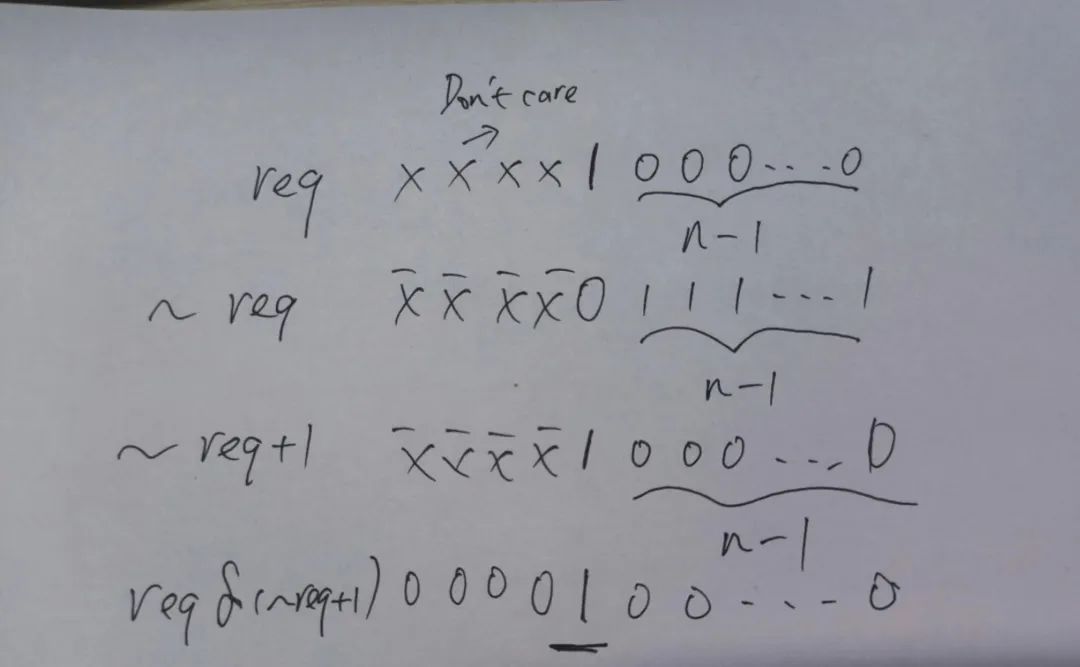 Don't care
→
req x x x x 1 0 0 0 . . . . 0
n-1
~ req x̄ x̄ x̄ x̄ 0 1 1 1 - - - - 1
n-1
~ req+1 x̄ x̄ x̄ x̄ 1 0 0 0 . . . . 0
n-1
req & (~req+1) 0 0 0 0 1 0 0 - - - - 0